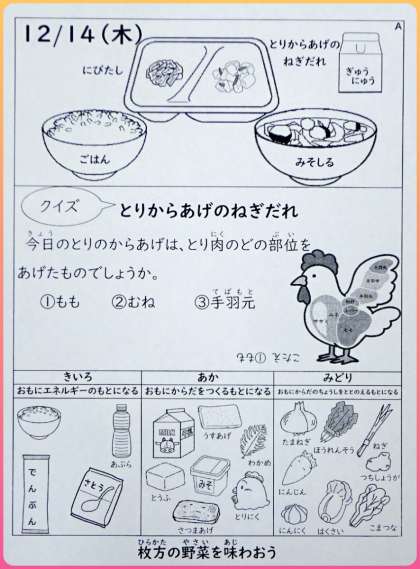 12/14(木)
A
とりからあげの
ねぎだれ
にびたし
ぎゅう
にゅう
ごはん
みそしる
クイズ
とりからあげのねぎだれ
きょう にく ぶい
今日のとりのからあげは、とり肉のどの部位を
あげたものでしょうか。
てばもと
①もも ②むね ③手羽元
こたえ ①もも
きいろ あか みどり
おもにエネルギーのもとになる おもにからだをつくるもとになる おもにからだのちょうしをととのえるもとになる
あぶら
でんぷん
さとう
MILK
うすあげ
わかめ
とうふ
みそ
とりにく
さつまあげ
たまねぎ
ほうれんそう
ねぎ
にんじん
つちしょうが
にんにく
はくさい
こまつな
ひらかた やさい あじ
枚方の野菜を味わおう